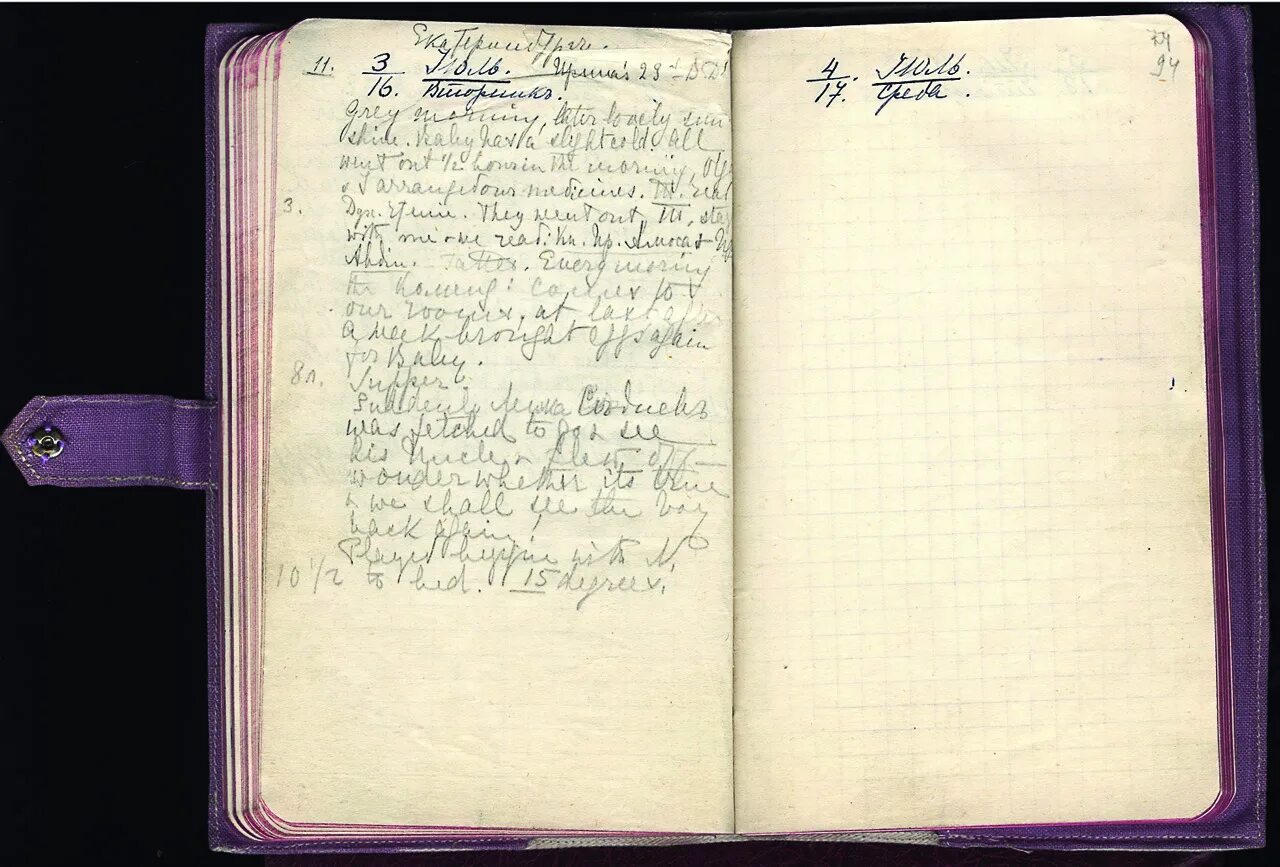 Екатеринбург.
11. 3/16. Июль. Ирина's 23rd B.D.
Вторникъ.
Grey morning, later lovely sun
shine. Baby has a slight cold. All
went out 1/2 hour in the morning, Olga
& I arranged our medicines. T. read
3. Дух. Чтеніе. They went out, T. stay
with me & we read: Кн. Пр. Амоса &
Авдія. Every morning
the Komend: comes to
our rooms, at last after
a week brought eggs again
for Baby.
8ч. Supper.
Suddenly Лешка Седневъ
was fetched to go & see
his Uncle & flew off –
wonder whether its true
& we shall see the boy
back again!
Played bezique with N.
10 1/2 to bed. 15 degrees.
4/17. Июль.
Среда.
94